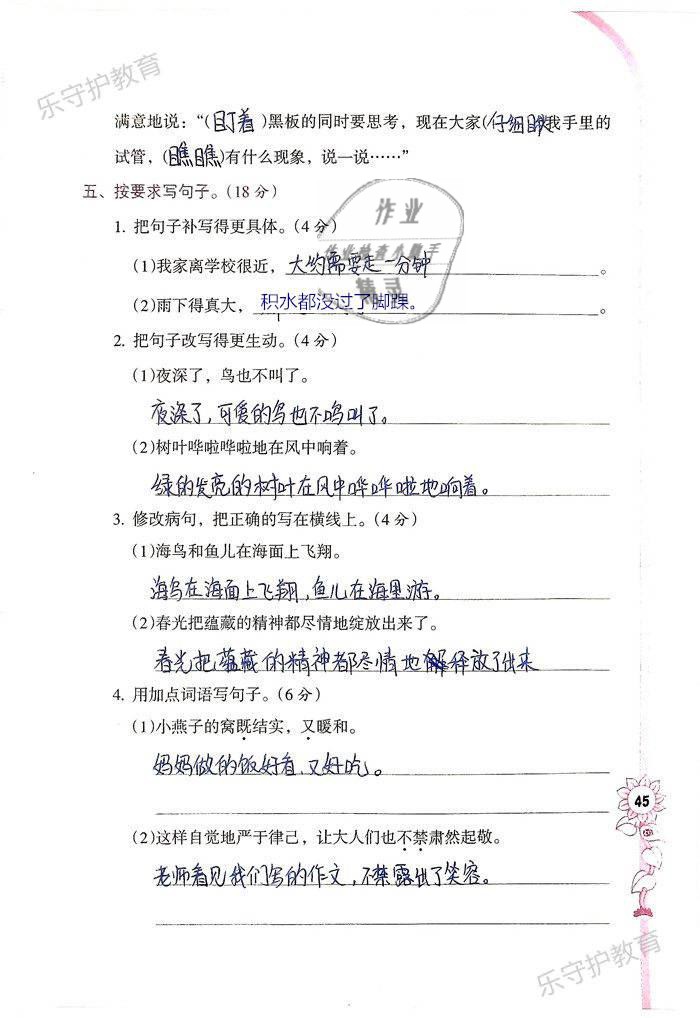 乐守护教育
满意地说：“(盯着)黑板的同时要思考，现在大家(仔细瞧)我手里的
试管，(瞧瞧)有什么现象，说一说……”
五、按要求写句子。(18 分)
作业
作业检查小助手
精灵
1. 把句子补写得更具体。(4 分)
(1)我家离学校很近，大约需要走一分钟。
(2)雨下得真大，积水都没过了脚踝。。
2. 把句子改写得更生动。(4 分)
(1)夜深了，鸟也不叫了。
夜深了，可爱的鸟也不鸣叫了。
(2)树叶哗啦哗啦地在风中响着。
绿的发亮的树叶在风中哗哗啦地响着。
3. 修改病句，把正确的写在横线上。(4 分)
(1)海鸟和鱼儿在海面上飞翔。
海鸟在海面上飞翔，鱼儿在海里游。
(2)春光把蕴藏的精神都尽情地绽放出来了。
春光把蕴藏的精神都尽情地释放了出来
4. 用加点词语写句子。(6 分)
(1)小燕子的窝既结实，又暖和。
妈妈做的饭好看，又好吃。
45
(2)这样自觉地严于律己，让大人们也不禁肃然起敬。
老师看见我们写的作文，不禁露出了笑容。
乐守护教育